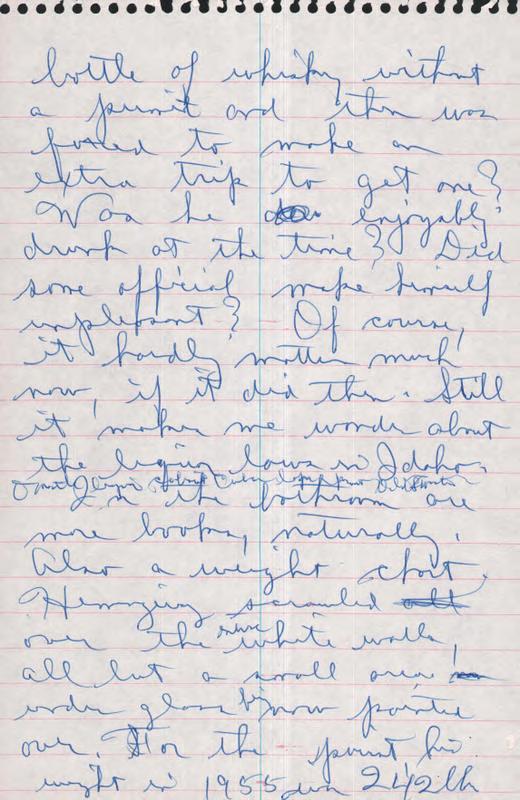 bottle of whisky without
a permit and then was
forced to make an
extra trip to get one?
Was he enjoyably
drunk at the time? Did
some official make himself
unpleasant? Of course,
it hardly matters much
now, if it did then. Still
it makes me wonder about
the liquor laws in Idaho.
In the bathroom are
more books, naturally.
Also a weight chart
Hemingway scrawled
over the white walls,
all but a small area
under glass now painted
over. For the his
weight in 1955 was 242 lb